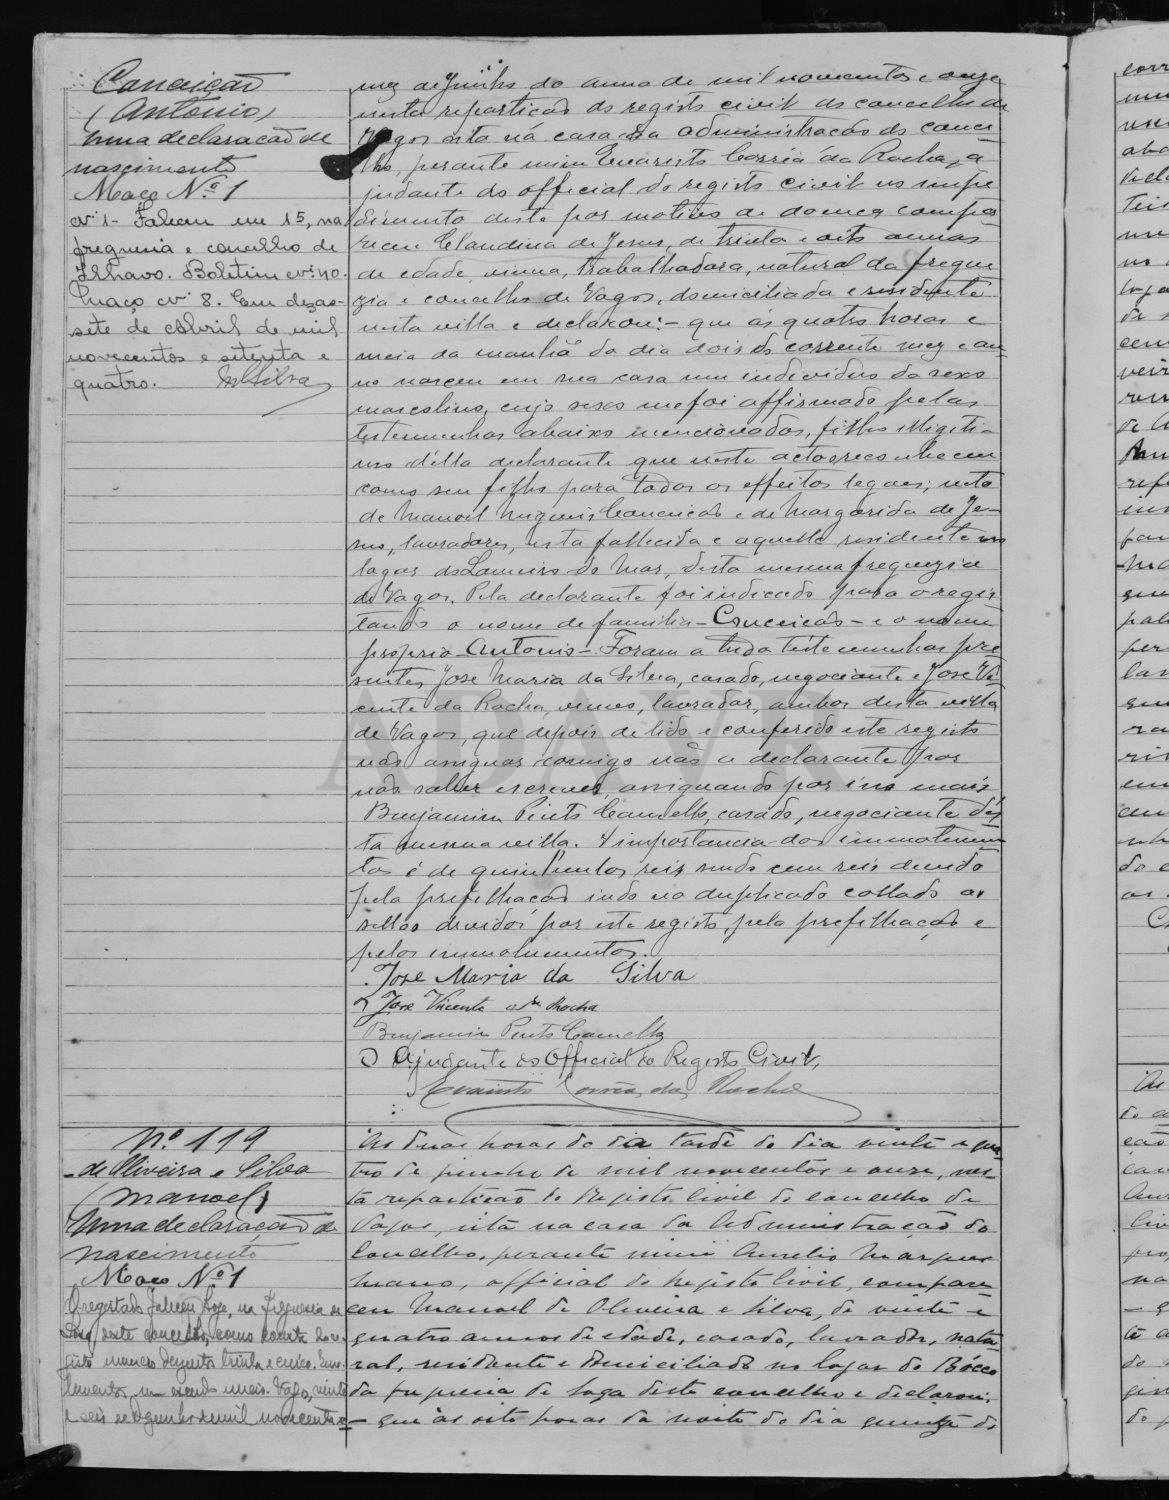 Conceição
(Antonio)
Uma declaração de
nascimento
Maço Nº 1
Nº 1 - Faleceu em 15, na
freguesia e concelho de
Ilhavo. Boletim nº 40.
maço nº 8. Em dezas-
sete de Abril de mil
novecentos e setenta e
quatro. Silva
mez de Junho do anno de mil novecentos e onze
nesta repartição do registo civil do concelho de
Vagos sita na casa da administração do conce
lho, perante mim Evaristo Corrêa da Rocha, a
judante do official do registo civil no impe
dimento deste por motivo de doença compa
receu Claudina de Jesus, de trinta e oito annos
de edade, viuva, trabalhadora, natural da fregue
zia e concelho de Vagos, domiciliada e residente
nesta villa e declarou: - que ás quatro horas e
meia da manhã do dia dois do corrente mez e an
no nasceu em sua casa um individuo do sexo
masculino, cujo sexo me foi affirmado pelas
testemunhas abaixo mencionadas, filho illegiti-
mo d'ella declarante que neste acto o reconheceu
como seu filho para todos os effeitos legaes; neto
de Manoel Conceição e de Margarida de Je-
sus, lavradores, esta fallecida e aquelle residente no
logar do Lameiro do Mar, desta mesma freguezia
de Vagos. Pela declarante foi indicado para o regis
tando o nome de familia - Conceição - e o nome
proprio - Antonio - Foram a tudo testemunhas pre
sentes José Maria da Silva, casado, negociante e José Vi
cente da Rocha, viuvo, lavrador, ambos desta villa
de Vagos, que depois de lido e conferido este registo
vão assignar comigo não a declarante por
não saber escrever, assignando por ella mais
Benjamim Pinto Camello, casado, negociante des
ta mesma villa. A importancia dos emolumen
tos é de quinhentos reis sendo cem reis devido
pela prefilhação indo no duplicado collado os
sellos devidos por este registo, pela prefilhação e
pelos emolumentos.
José Maria da Silva
José Vicente da Rocha
Benjamim Pinto Camello
O Ajudante do Official do Registo Civil,
Evaristo Corrêa da Rocha
Nº 119
de Oliveira e Silva
(Manoel)
Uma declaração de
nascimento
Maço Nº 1
O registado faleceu hoje, na freguesia de
Soza, deste concelho, como consta do re-
gisto numero duzentos trinta e cinco.
Vagos, vinte
e seis de Junho de mil novecentos e
Ás duas horas do dia tarde do dia vinte e qua
tro de junho de mil novecentos e onze, nes-
ta repartição do Registo Civil do concelho de
Vagos, sita na casa da Administração do
Concelho, perante mim Aurelio Marques
Mano, official do Registo Civil, compare
ceu Manoel de Oliveira e Silva, de vinte e
quatro annos de edade, casado, lavrador, natu
ral, residente e domiciliado no logar do Bôcco
da freguezia de Soza deste concelho e declarou:
- que ás oito horas da noite do dia quinze de
ADAVR